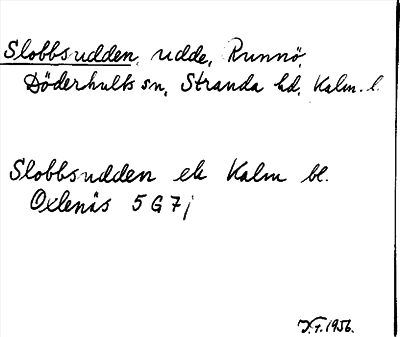 Slobbsudden, udde, Runnö,
Döderhults sn, Stranda hd, Kalm. l.
Slobbsudden ek Kalm bl.
Oxlenäs 5 G 7 j
1956.